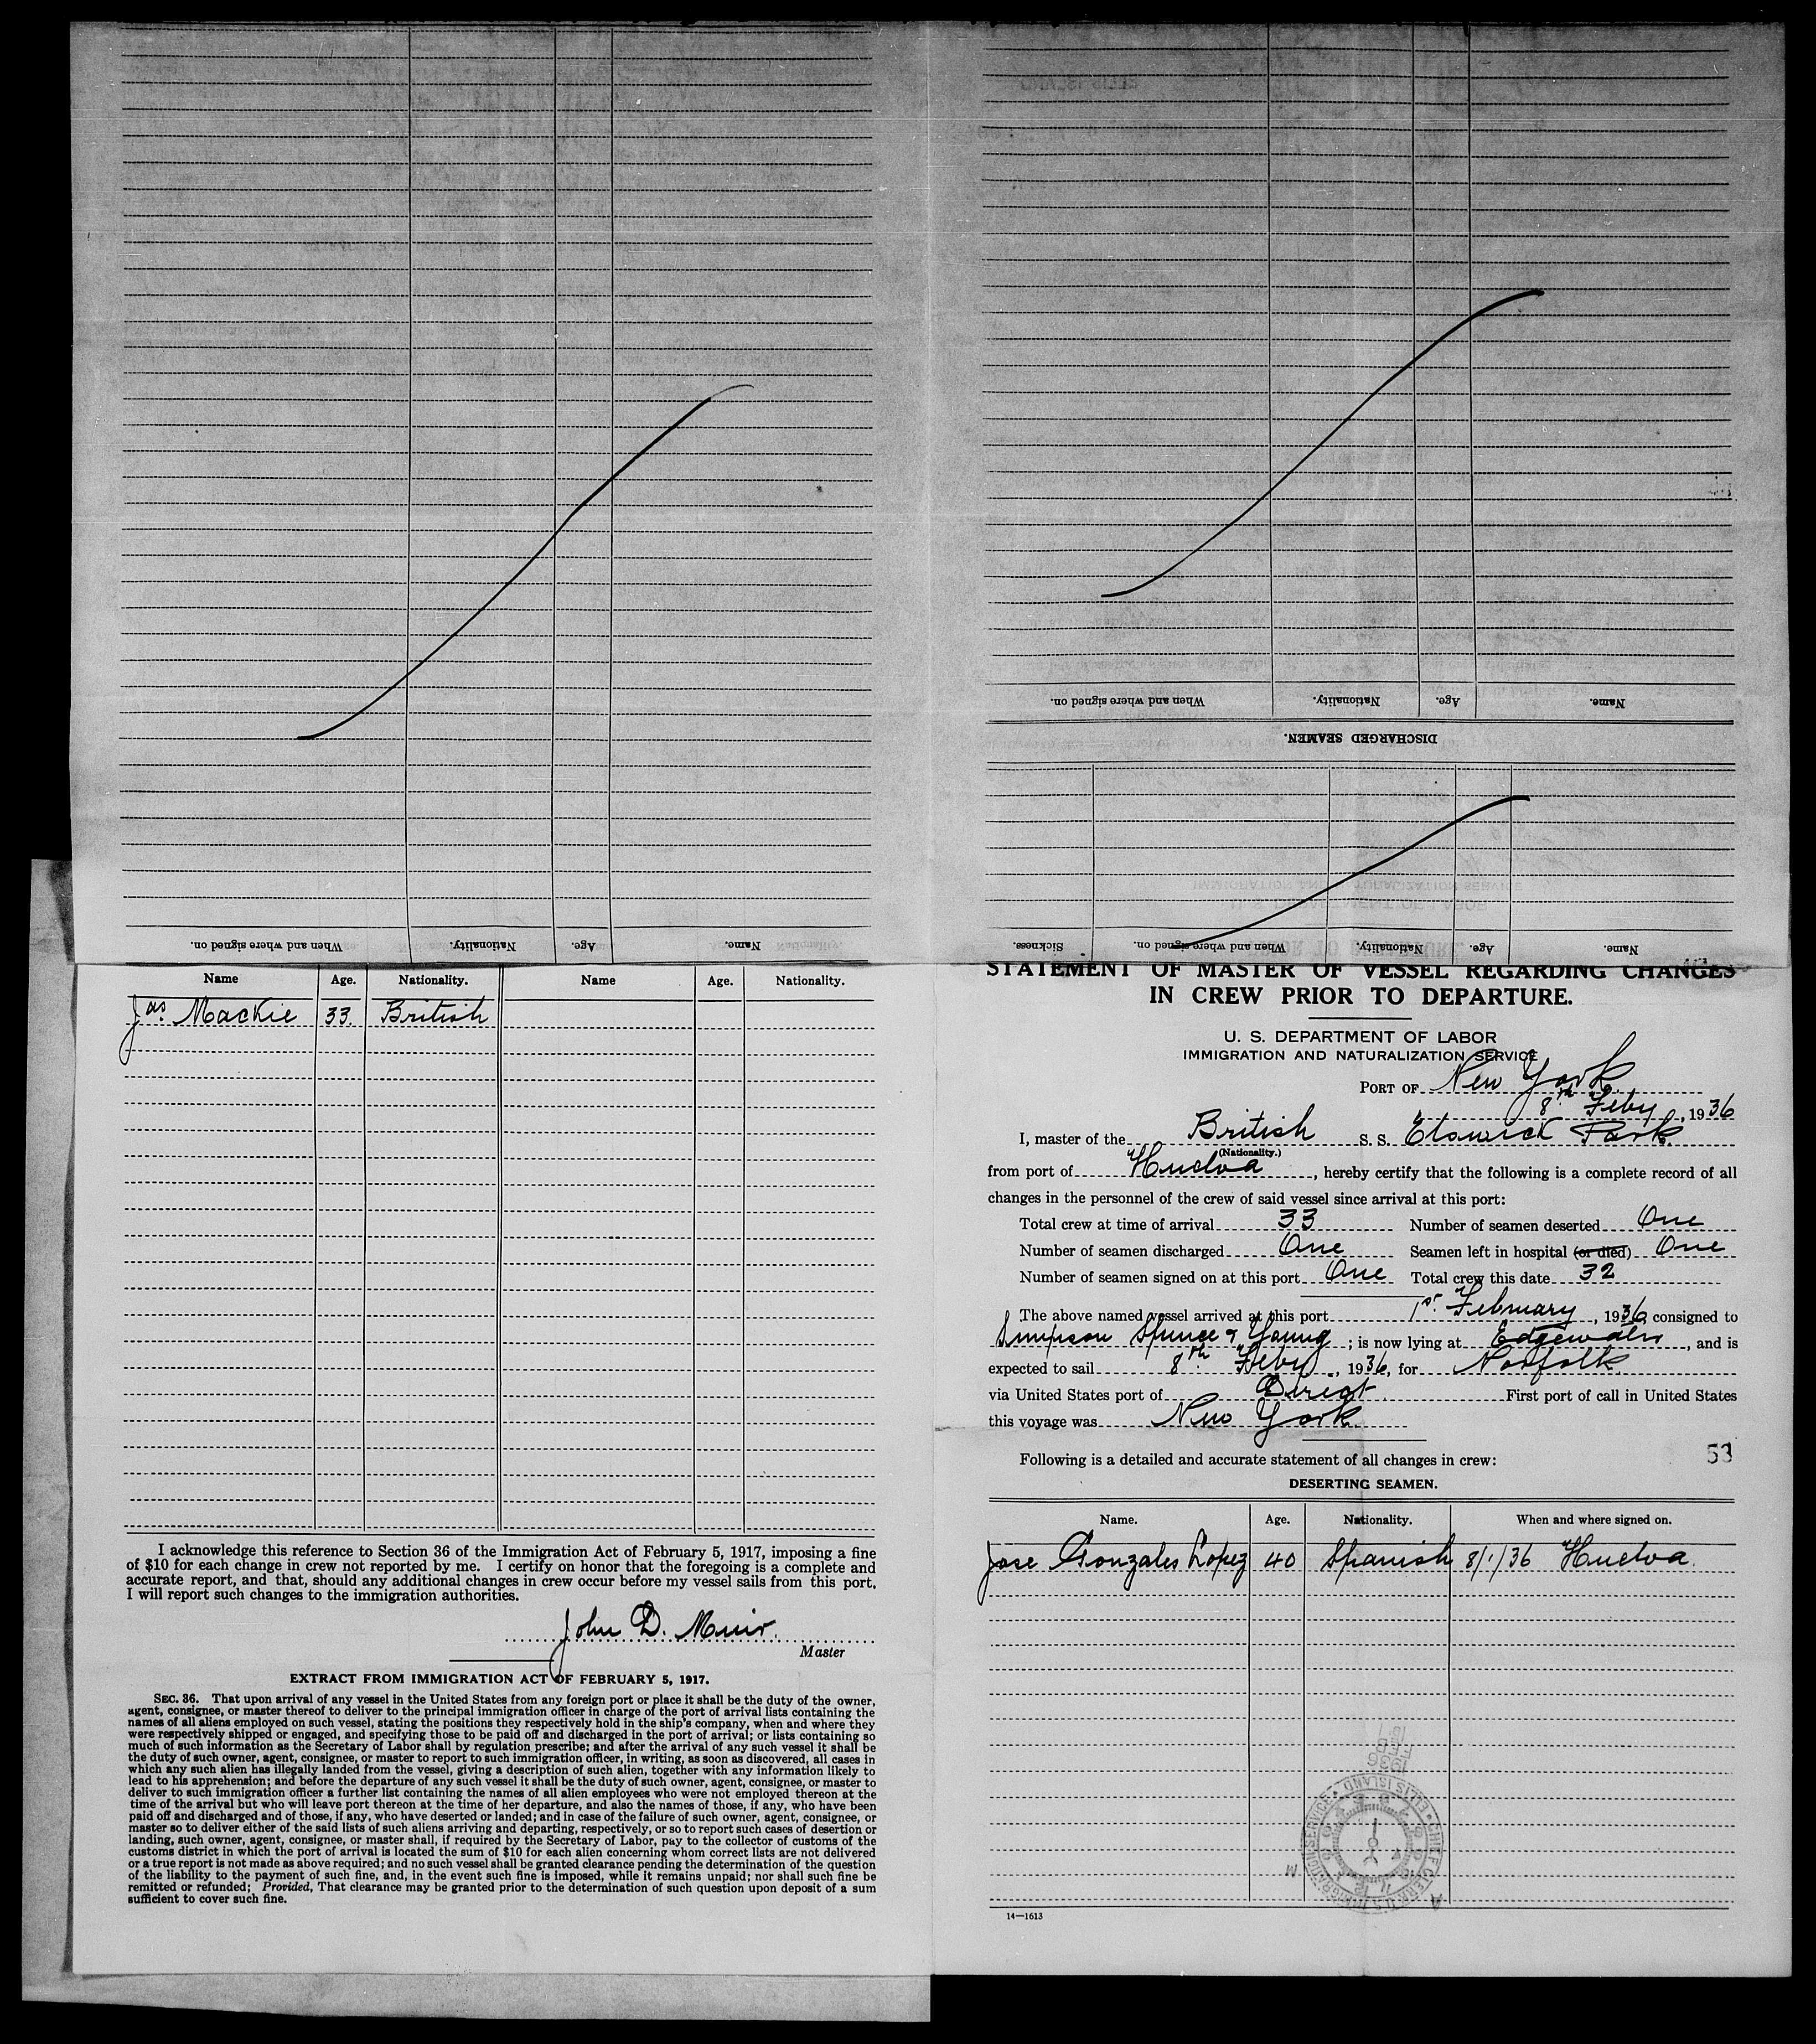 When and where signed on.
Nationality.
Age.
Name.
Name.
Age.
Nationality.
When and where signed on.
DISCHARGED SEAMEN.
Name.
Age.
Nationality.
When and where signed on.
Sickness.
Name Age. Nationality. Name Age. Nationality.
Jas. Mackie 33. British
I acknowledge this reference to Section 36 of the Immigration Act of February 5, 1917, imposing a fine
of $10 for each change in crew not reported by me. I certify on honor that the foregoing is a complete and
accurate report, and that, should any additional changes in crew occur before my vessel sails from this port,
I will report such changes to the immigration authorities.
John D. Muir.
Master
EXTRACT FROM IMMIGRATION ACT OF FEBRUARY 5, 1917.
SEC. 36. That upon arrival of any vessel in the United States from any foreign port or place it shall be the duty of the owner,
agent, consignee, or master thereof to deliver to the principal immigration officer in charge of the port of arrival lists containing the
names of all aliens employed on such vessel, stating the positions they respectively hold in the ship's company, when and where they
were respectively shipped or engaged, and specifying those to be paid off and discharged in the port of arrival; or lists containing so
much of such information as the Secretary of Labor shall by regulation prescribe; and after the arrival of any such vessel it shall be
the duty of such owner, agent, consignee, or master to report to such immigration officer, in writing, as soon as discovered, all cases in
which any such alien has illegally landed from the vessel, giving a description of such alien, together with any information likely to
lead to his apprehension; and before the departure of any such vessel it shall be the duty of such owner, agent, consignee, or master to
deliver to such immigration officer a further list containing the names of all alien employees who were not employed thereon at the
time of the arrival but who will leave port thereon at the time of her departure, and also the names of those, if any, who have been
paid off and discharged and of those, if any, who have deserted or landed; and in case of the failure of such owner, agent, consignee, or
master so to deliver either of the said lists of such aliens arriving and departing, respectively, or so to report such cases of desertion or
landing, such owner, agent, consignee, or master shall, if required by the Secretary of Labor, pay to the collector of customs of the
customs district in which the port of arrival is located the sum of $10 for each alien concerning whom correct lists are not delivered
or a true report is not made as above required; and no such vessel shall be granted clearance pending the determination of the question
of the liability to the payment of such fine, and, in the event such fine is imposed, while it remains unpaid; nor shall such fine be
remitted or refunded; Provided, That clearance may be granted prior to the determination of such question upon deposit of a sum
sufficient to cover such fine.
STATEMENT OF MASTER OF VESSEL REGARDING CHANGES
IN CREW PRIOR TO DEPARTURE.
U. S. DEPARTMENT OF LABOR
IMMIGRATION AND NATURALIZATION SERVICE
PORT OF New York
8th Feby, 1936
I, master of the British S. S. Elswick Park
(Nationality.)
from port of Huelva, hereby certify that the following is a complete record of all
changes in the personnel of the crew of said vessel since arrival at this port:
Total crew at time of arrival 33 Number of seamen deserted One
Number of seamen discharged One Seamen left in hospital (or died) One
Number of seamen signed on at this port One Total crew this date 32
The above named vessel arrived at this port 1st February, 1936, consigned to
Simpson Spence & Young; is now lying at Edgewater, and is
expected to sail 8th Feby, 1936, for Norfolk
via United States port of Direct. First port of call in United States
this voyage was New York
53
Following is a detailed and accurate statement of all changes in crew:
DESERTING SEAMEN.
Name. Age. Nationality. When and where signed on.
Jose Gonzales Lopez 40 Spanish 8/1/36 Huelva.
14—1613